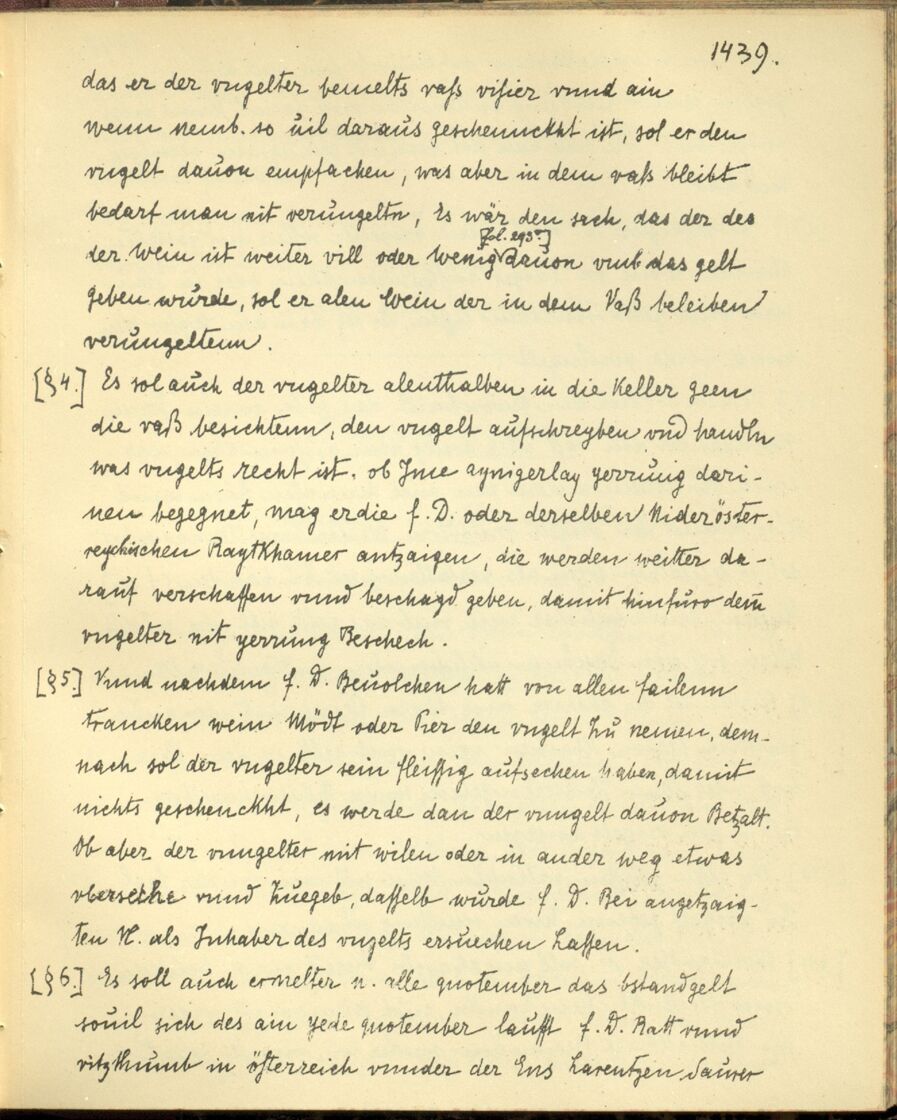 1439.
das er der vngelter bemelts vaß visier vnnd ain
wenn nemb. so uil daraus geschennckht ist, sol er den
vngelt dauon empfachen, was aber in dem vaß bleibt
bedarf man nit verungeltn, Es wär den sach, das der des
[fol. 293v]
der Wein ist weiter vill oder wenig dauon vmb das gelt
geben wurde, sol er alen Wein der in dem Vaß beleiben
verungeltenn.
[§4.] Es sol auch der vngelter alenthalben in die Keller geen
die vaß besichtenn, den vngelt aufschreyben vnd handln
was vngelts recht ist. ob Jme aynigerlay yerrung dari-
nen begegnet, mag er die f. D. oder derselben Nideröster-
reychischen RaytKhamer antzaigen, die werden weitter da-
rauf verschaffen vnnd beschayd geben, damit hinfuro dem̅
vngelter nit yerrung Beschech.
[§5.] Vnnd nachdem f. D. Beuolchen hatt von allen failenn
trancken wein Mödt oder Pier den vngelt Zu nemen, dem-
nach sol der vngelter sein fleissig aufsechen haben, damit
nichts geschenckht, es werde dan der vnngelt dauon Betzalt.
Ob aber der vnngelter mit wilen oder in ander weg etwas
vbersehe vnnd Zuegeb, dasselb wurde f. D. Bei angetzaig-
ten N. als Inhaber des vngelts ersuechen Lassen.
[§6.] Es soll auch ermelter N. alle quotember das bstandgelt
souil sich des ain yede quotember laufft f. D. Ratt vnnd
vitzthumb in österreich vnnder der Ens Larentzen Saurer